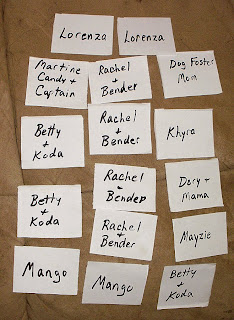 Lorenza
Lorenza
Martine
Candy +
Captain
Rachel
+
Bender
Dog Foster
Mom
Betty
+
Koda
Rachel
+
Bender
Khyra
Betty
+
Koda
Rachel
+
Bender
Dory +
Mama
Rachel
+
Bender
Mayzie
Mango
Mango
Betty
+
Koda